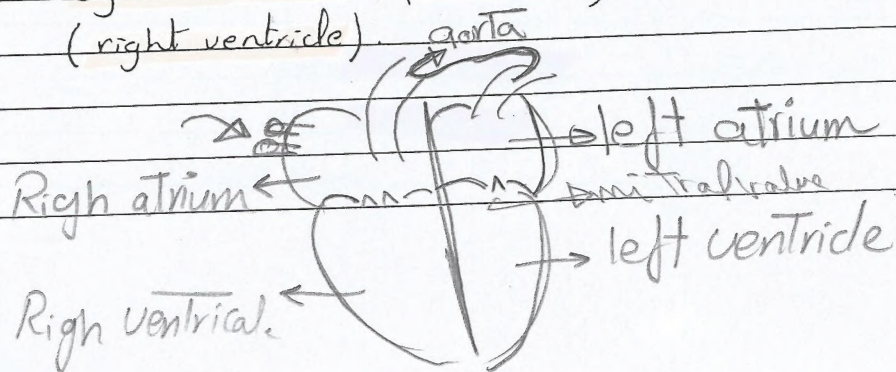 (right ventricle)
aorta
left atrium
Righ atrium
mitral valve
left ventricle
Righ ventrical.